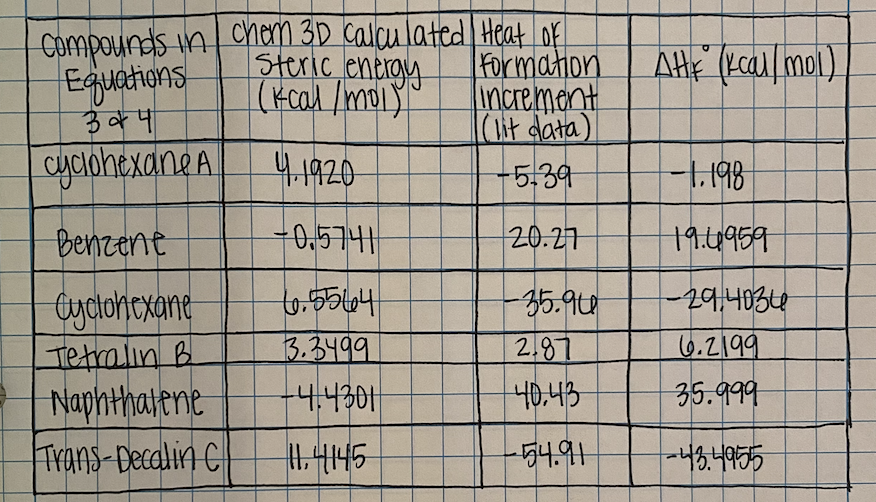 Compounds in Equations 3 & 4 | Chem 3D Calculated Steric energy (Kcal/mol) | Heat of Formation increment (lit data) | ΔHf° (Kcal/mol)
Cyclohexane A | 4.1920 | -5.39 | -1.198
Benzene | -0.5741 | 20.27 | 19.6959
Cyclohexane | 6.5564 | -35.96 | -29.4036
Tetralin B | 3.3499 | 2.87 | 6.2199
Naphthalene | -4.4301 | 40.43 | 35.999
Trans-Decalin C | 11.4145 | -54.91 | -43.4955